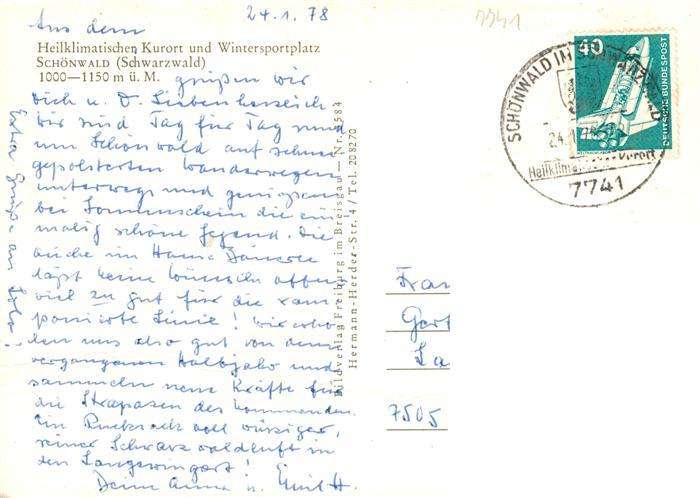 24.1.78
7741
Aus dem
Heilklimatischen Kurort und Wintersportplatz
SCHÖNWALD (Schwarzwald)
1000—1150 m ü. M.
grüßen wir
Dich u. D. Lieben herzlich
Wir sind Tag für Tag rund
um Schönwald auf schnee
gepolsterten Wanderwegen
unterwegs und geniessen
bei Sonnenschein die ein
malig schöne Gegend. Die
Küche im Hause
läßt keine Wünsche offen
viel zu gut für die ram
ponierte Linie! Wir erho
len uns also gut von dem
vergangenen Halbjahr und
sammeln neue Kräfte für
die Strapazen des kommenden.
Ein Rucksack voll würziger,
reiner Schwarzwaldluft in
den Langewingert!
Deine Anna u. Emil H.
Extra Grüße an
Bildverlag Freiburg im Breisgau — Nr. 5584
Hermann-Herder-Str. 4 / Tel. 208270
SCHÖNWALD IM SCHWARZWALD
24.1.78
Heilklimatischer Kurort
7741
40
DEUTSCHE BUNDESPOST
Frau
Gert
La
7505